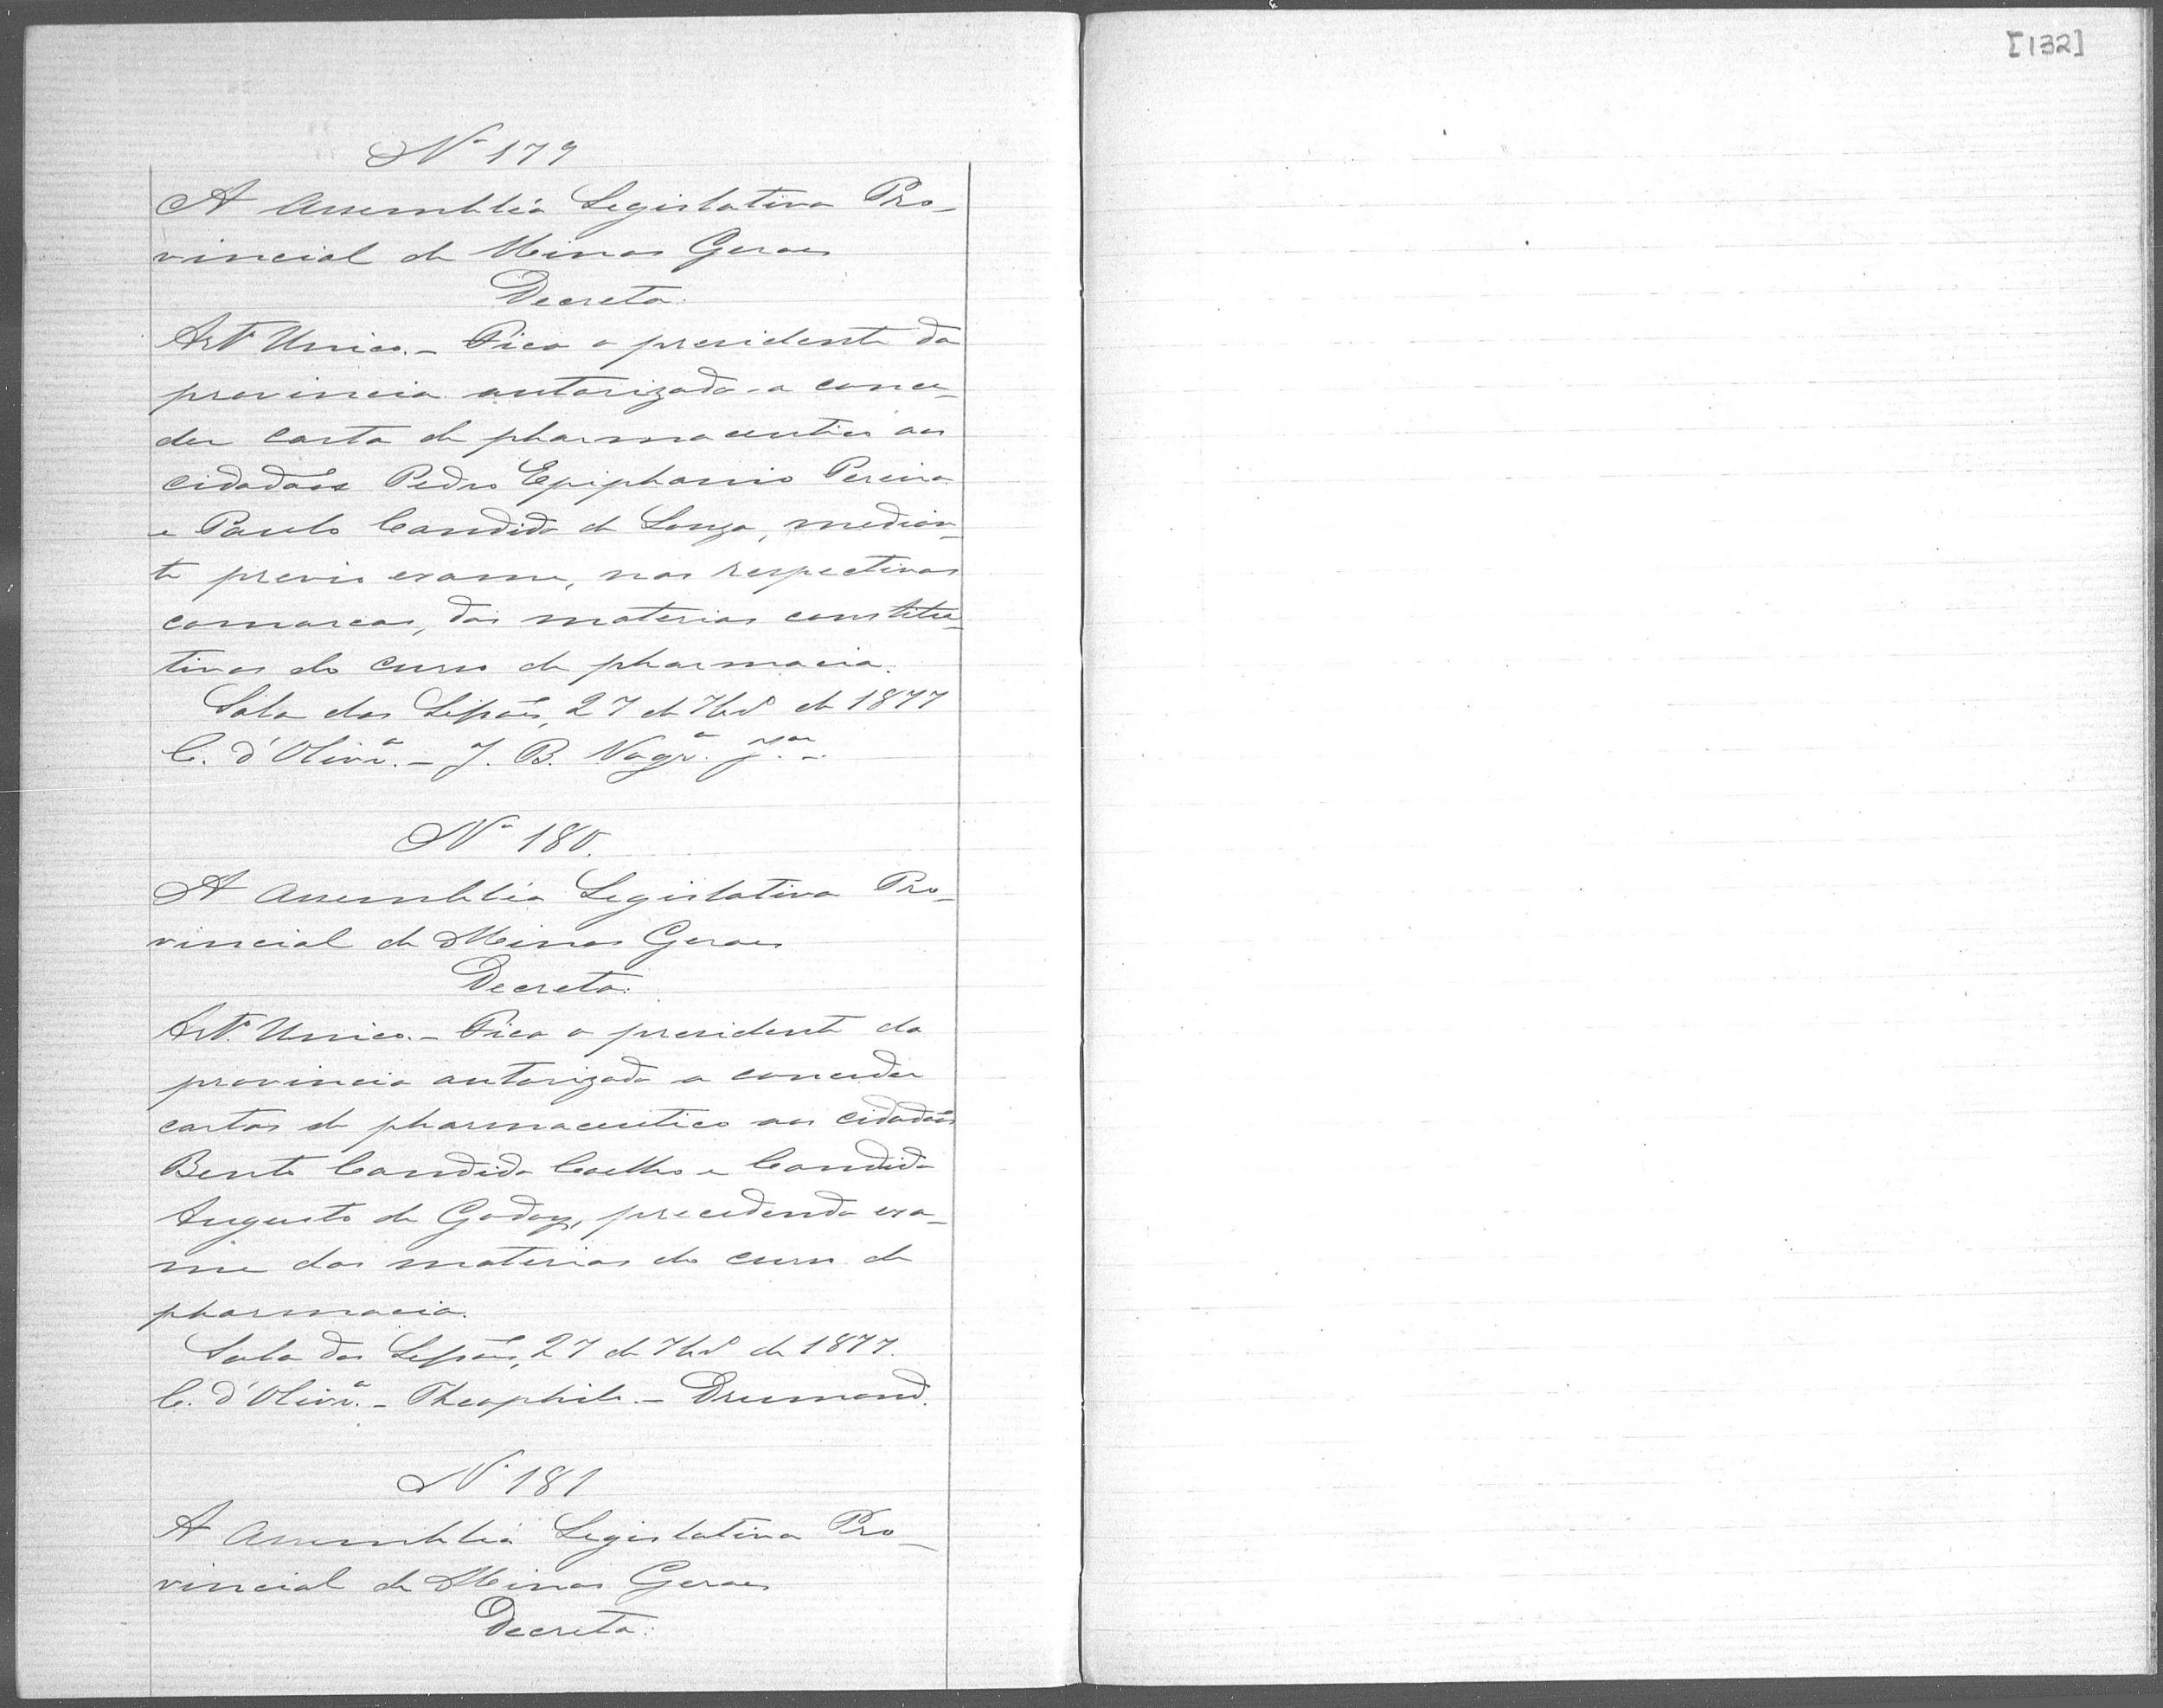 [132]
Nº 179
A Assembléa Legislativa Pro-
vincial de Minas Geraes
Decreta:
Artº Unico. - Fica o presidente da
provincia autorizado a conce-
der carta de pharmaceutico aos
cidadãos Pedro Epiphanio Pereira
e Paulo Candido de Souza, median-
te previo exame, nas respectivas
comarcas, das materias constitu-
tivas do curso de pharmacia.
Sala das Sessões, 27 de 7bro de 1877
C. d'Olivrª. - J. B. Nogrª. Jor.
Nº 180.
A Assembléa Legislativa Pro-
vincial de Minas Geraes
Decreta:
Artº. Unico. - Fica o presidente da
provincia autorizado a conceder
cartas de pharmaceutico aos cidadãos
Bento Candido Coelho e Candido
Augusto de Godoy, precedendo exa-
me das materias do curso de
pharmacia.
Sala das Sessões, 27 de 7bro de 1877.
C. d'Olivrª. - Theophilo. - Drumond.
Nº 181
A Assembléa Legislativa Pro-
vincial de Minas Geraes
Decreta: